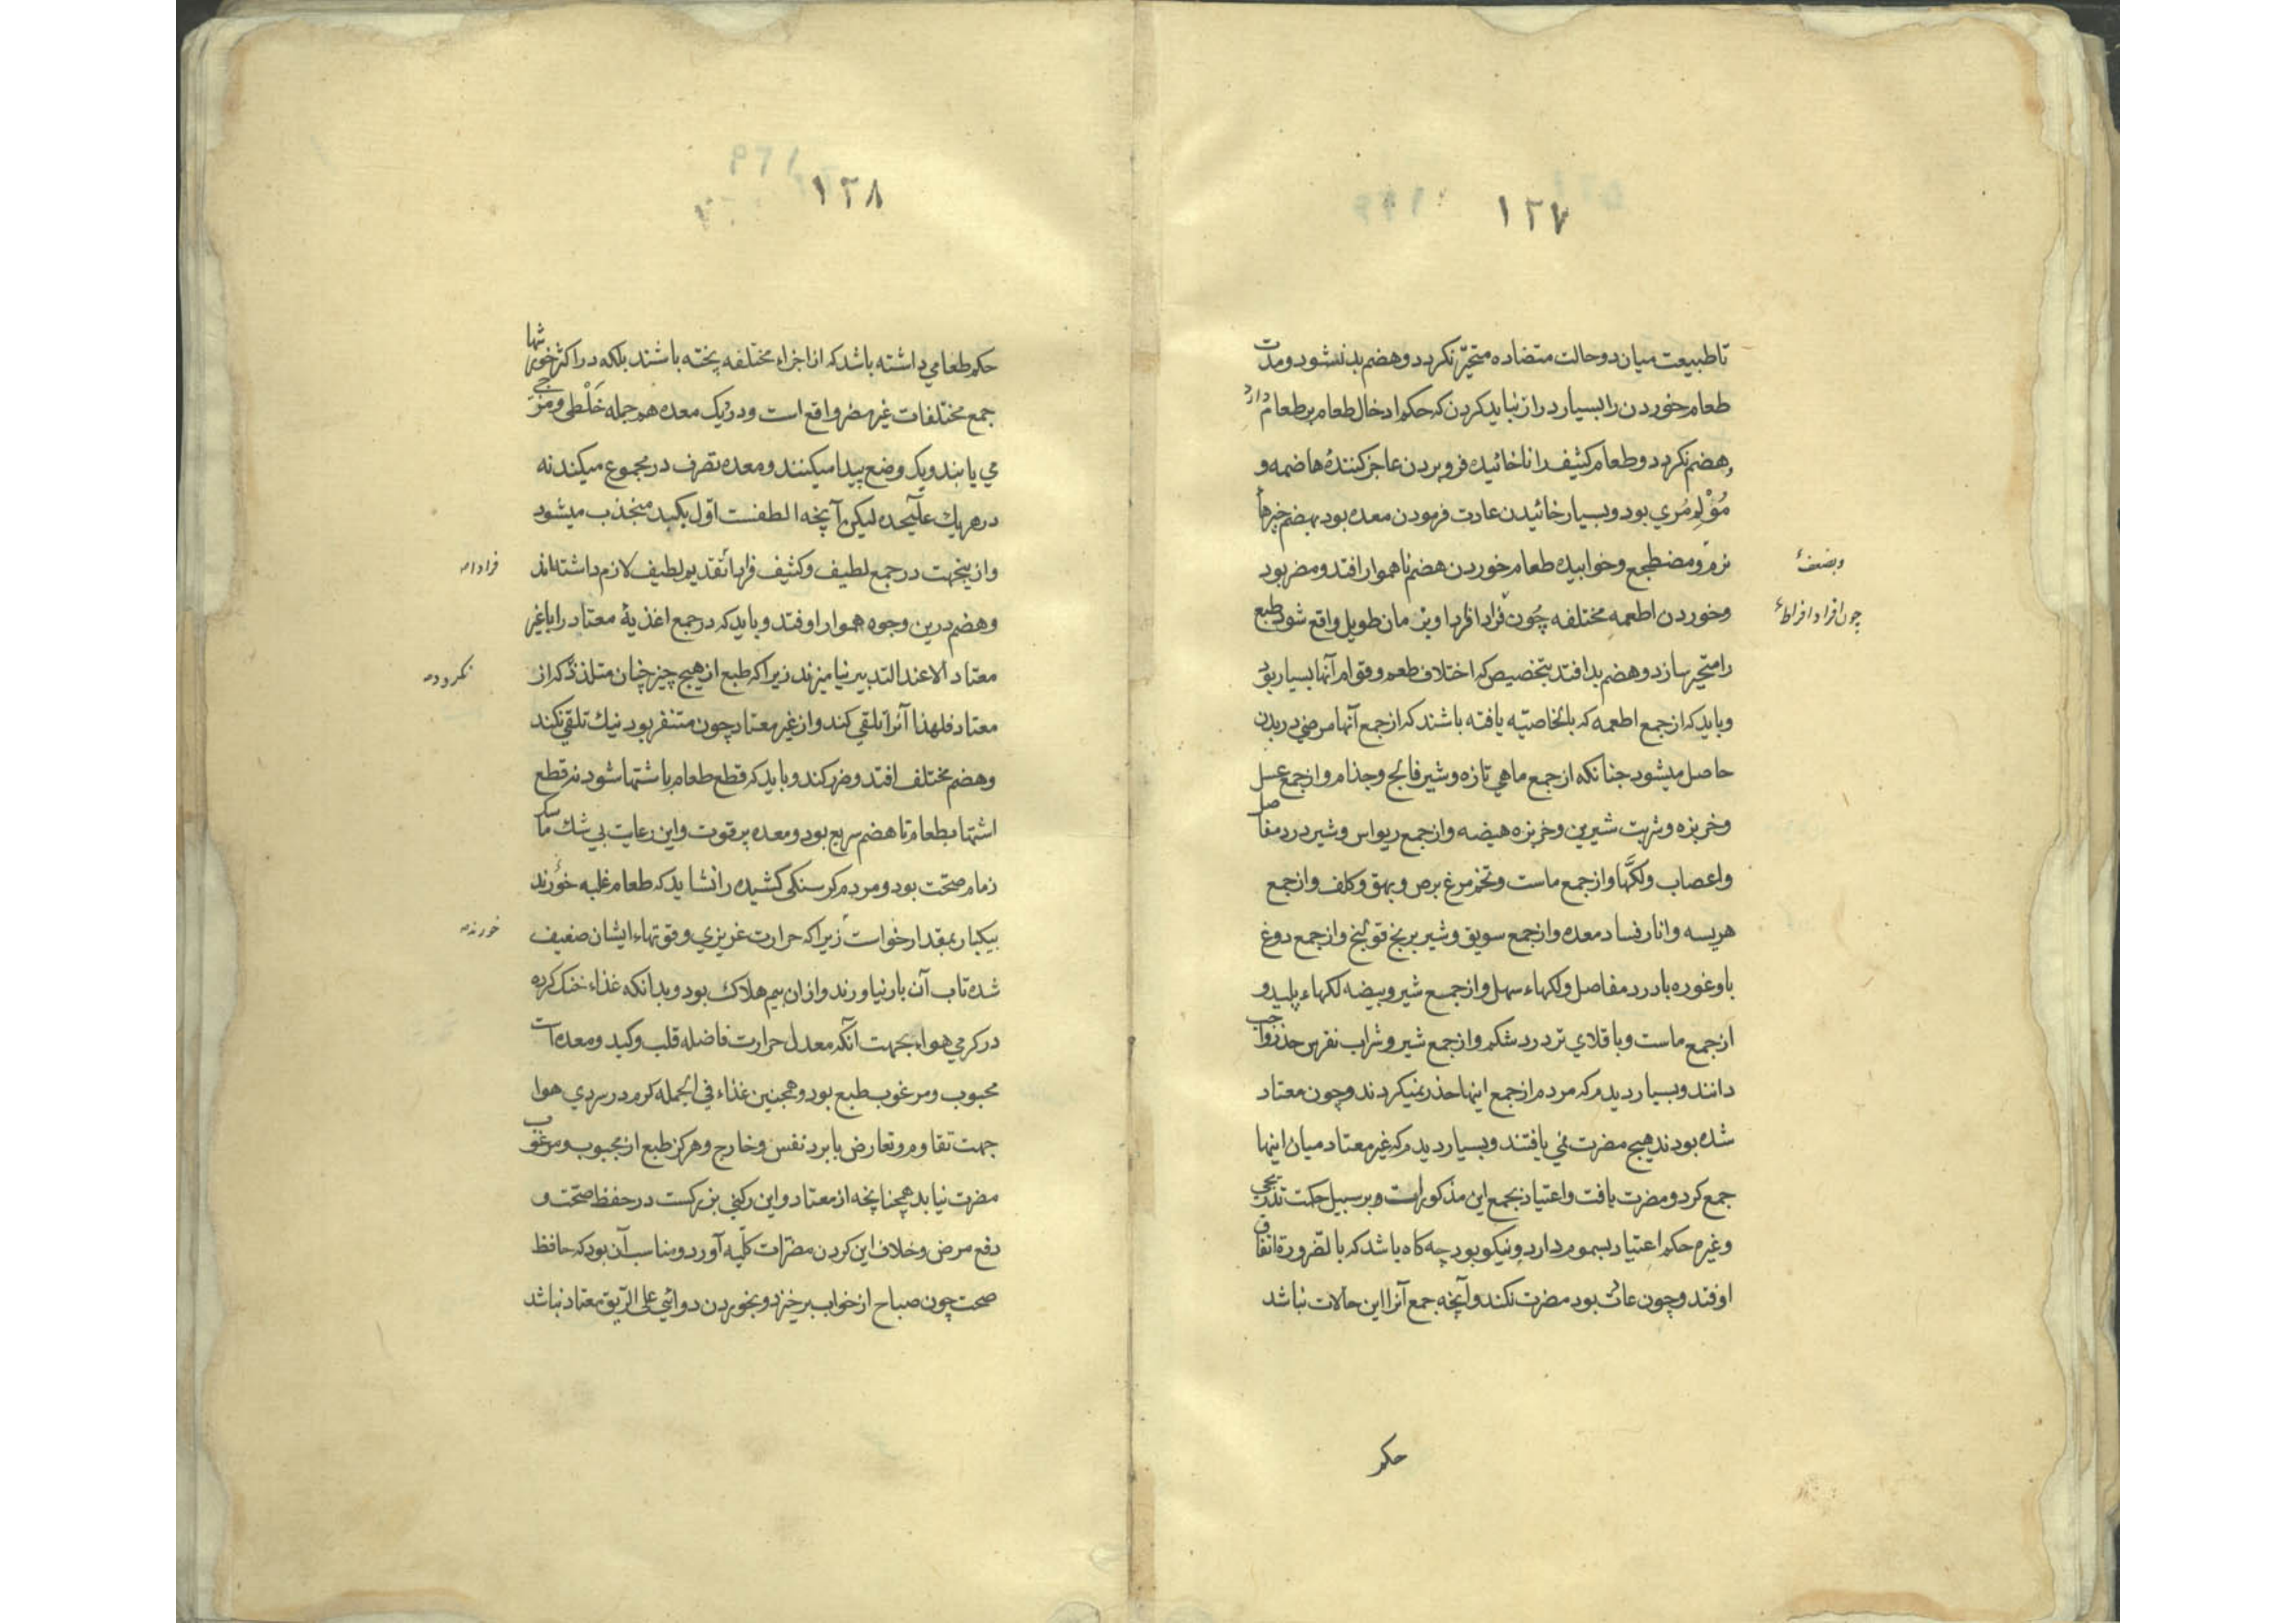 ١٢٧
تا طبیعت میان دو حالت متضاده متحیّر نکردد و هضم بد نشود و مدت
طعام خوردن را بسیار دراز نباید کردن که حکم ادخال طعام بر طعام دارد
و هضم نکردد و طعام کثیف را ناخائیده فرو بردن عاجز کنندهٔ هاضمه و
مُؤْلِم مُري بود و بسیار خائیدن عادت فرمودن معده بود بهضم خیرها
نرم و مضطجع و خوابیده طعام خوردن هضم ناهموار افتد و مضر بود
و خوردن اطعمه مختلفه چون فرادا فرادا و بزمان طویل واقع شود طبع
چون افراد افراط
را متحیر سازد و هضم بد افتد بتخصیص که اختلاف طعم و قوام آنها بسیار بود
و باید که از جمع اطعمه که بالخاصیّه یافته باشند که از جمع آنها مرضی در بدن
حاصل میشود جنانکه از جمع ماهي تازه و شیر فالج و جذام و از جمع عسل
و خربزه و شربت شیرین و خربزه هیضه و از جمع ریواس و شیر درد مفاصل
و اعصاب و لکّها و از جمع ماست و تخم مرغ برص و بهق و کلف و از جمع
هریسه و انار فساد معده و از جمع سویق و شیر برنج قولنج و از جمع دوغ
با و غوره با درد مفاصل و لکهاء سهل و از جمع شیر و بیضه لکهاء پلید و
از جمع ماست و باقلاي تر درد شکم و از جمع شیر و شراب نقرس حذر واجب
دانند و بسیار دیدم که مردم از جمع اینها حذر نمیکردند و چون معتاد
شده بودند هیچ مضرت نمي یافتند و بسیار دیدم که غیر معتاد میان اینها
جمع کرد و مضرت یافت و اعتیاد بجمع این مذکورات و بر سبیل حکمت تدریجي
و غیره حکم اعتیاد بسموم دارد و نیکو بود چه کاه باشد که بالضرورة اتفاق
اوفتد و چون عادت بود مضرت نکند و آنچه جمع آنرا این حالات نباشد
حکم
١٢٨
حکم طعامي داشته باشد که از اجزاء مختلفه پخته باشند بلکه در اکثر خورشها
جمع مختلفات غیر مضر واقع است و در دیک معده هم جمله خَلْطی و مزجي
مي یابند و یک وضع پیدا میکنند و معده تصرف در مجموع میکند نه
در هر یك علیحده لیکن آنچه الطفست اوّل بکبد منجذب میشود
و ازینجهت در جمع لطیف و کثیف فرادا تقدیم لطیف لازم داشته‌اند
فرادا
و هضم درین وجوه هموار اوفتد و باید که در جمع اغذیهٔ معتاد را با غیر
معتاد الا عند التدبیر نیامیزند زیرا که طبع از هیچ چیز چنان متلذذ نکردد که از
نکردد
معتاد فلهذا آنرا تلقي کند و از غیر معتاد چون متنفر بود نیك تلقي نکند
و هضم مختلف افتد و ضرر کند و باید که قطع طعام باشتها شود نه قطع
اشتها بطعام تا هضم سریع بود و معده پر قوت و این رعایت بي شك ماسکه
زمام صحّت بود و مردم کرسنکي کشیده را نشاید که طعام غلبه خورند
بیکبار بمقدار خواست زیرا که حرارت غریزي و قوتهاء ایشان ضعیف
خورند
شده تاب آن بار نیاورند و از ان بیم هلاك بود و بدانکه غذاء خنك کرده
در کرمي هوا بجهت آنکه معدل حرارت فاضله قلب و کبد و معده است
محبوب و مرغوب طبع بود و همچنین غذاء في الجمله کرم در سردي هوا
جهت تقاوم و تعارض با برد نفس و خارج و هرکز طبع از محبوب و مرغوب
مضرت نیابد همچنانچه از معتاد و این رکني بزرکست در حفظ صحّت و
دفع مرض و خلاف این کردن مضرّات کلّیه آورد و مناسب آن بود که حافظ
صحت چون صباح از خواب برخیزد و بخوردن دوائي علی الرّیق معتاد نباشد